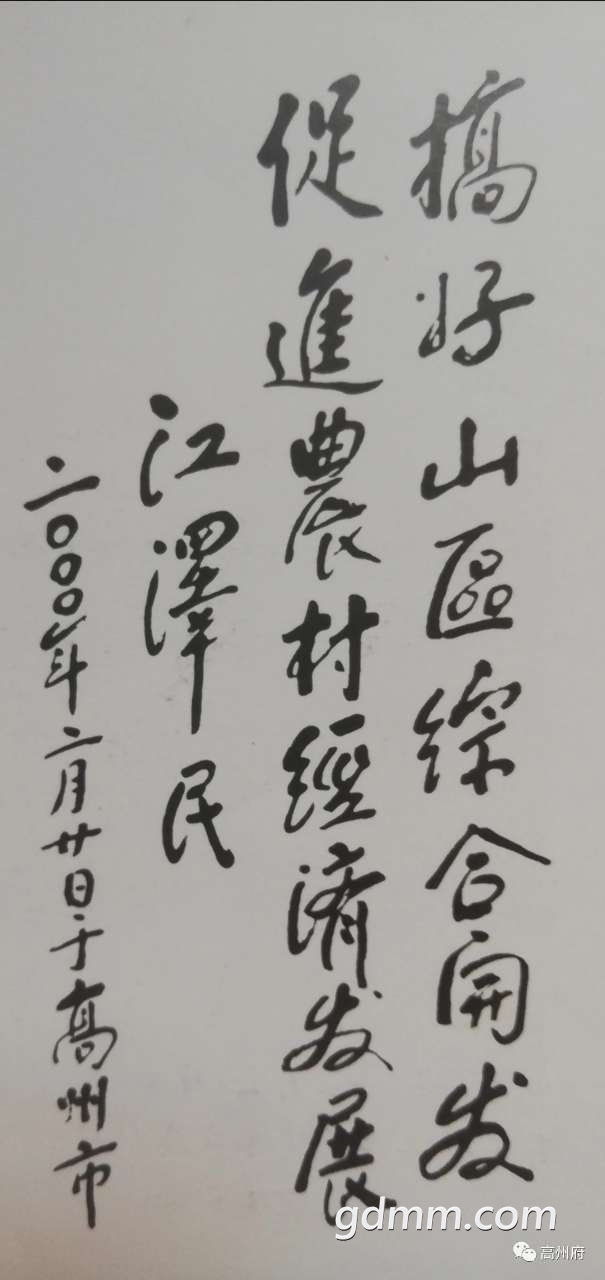 搞好山區綜合開发
促進農村經濟发展
江澤民
二〇〇〇年二月廿日于高州市
gdmm.com
高州府